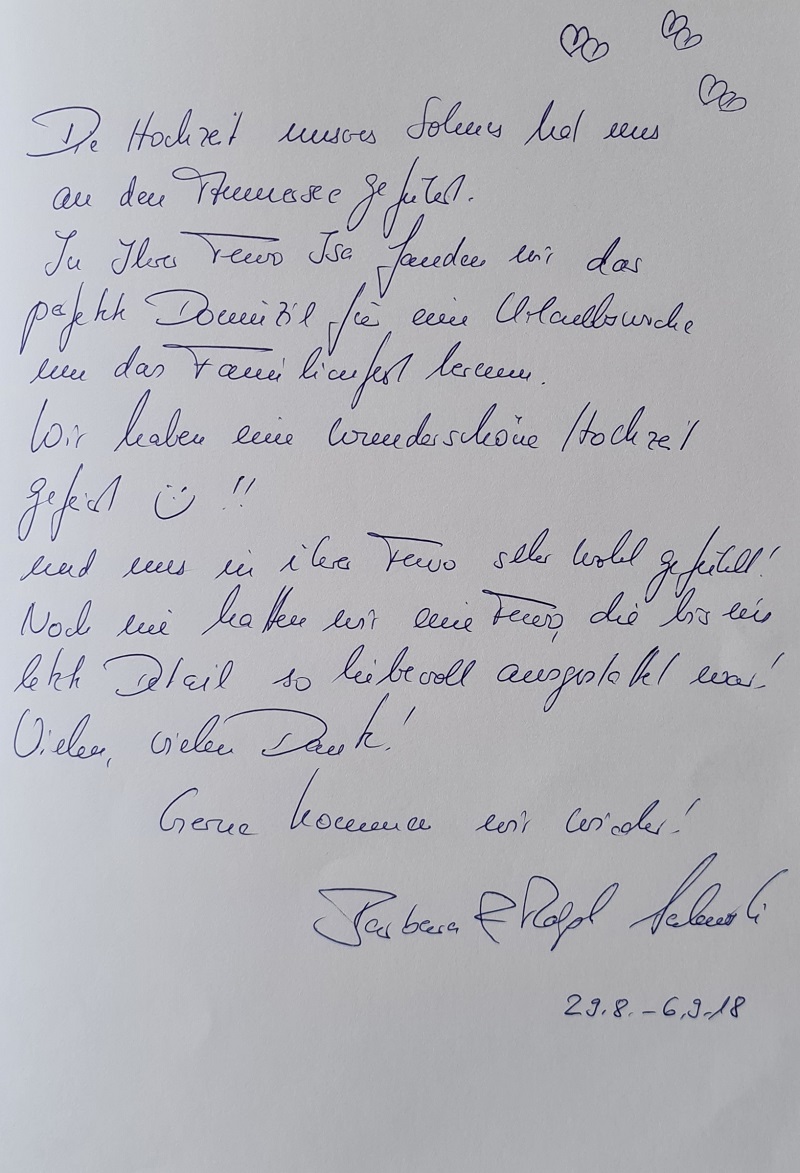 Die Hochzeit unseres Sohnes hat uns
an den Ammersee geführt.
In Ihrer Fewo Isa fanden wir das
perfekte Domizil für eine Urlaubswoche
um das Familienfest herum.
Wir haben eine wunderschöne Hochzeit
gefeiert !!
und uns in ihrer Fewo sehr wohl gefühlt!
Noch nie hatten wir eine Fewo, die bis ins
letzte Detail so liebevoll ausgestattet war!
Vielen, vielen Dank!
Gerne kommen wir wieder!
Barbara & Ralph
29.8. - 6.9.18